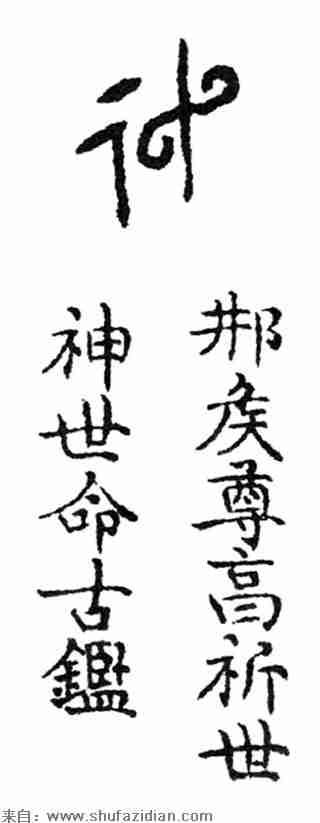 神
邢矦尊高祈世
神世命古鑑
来自：www.shufazidian.com